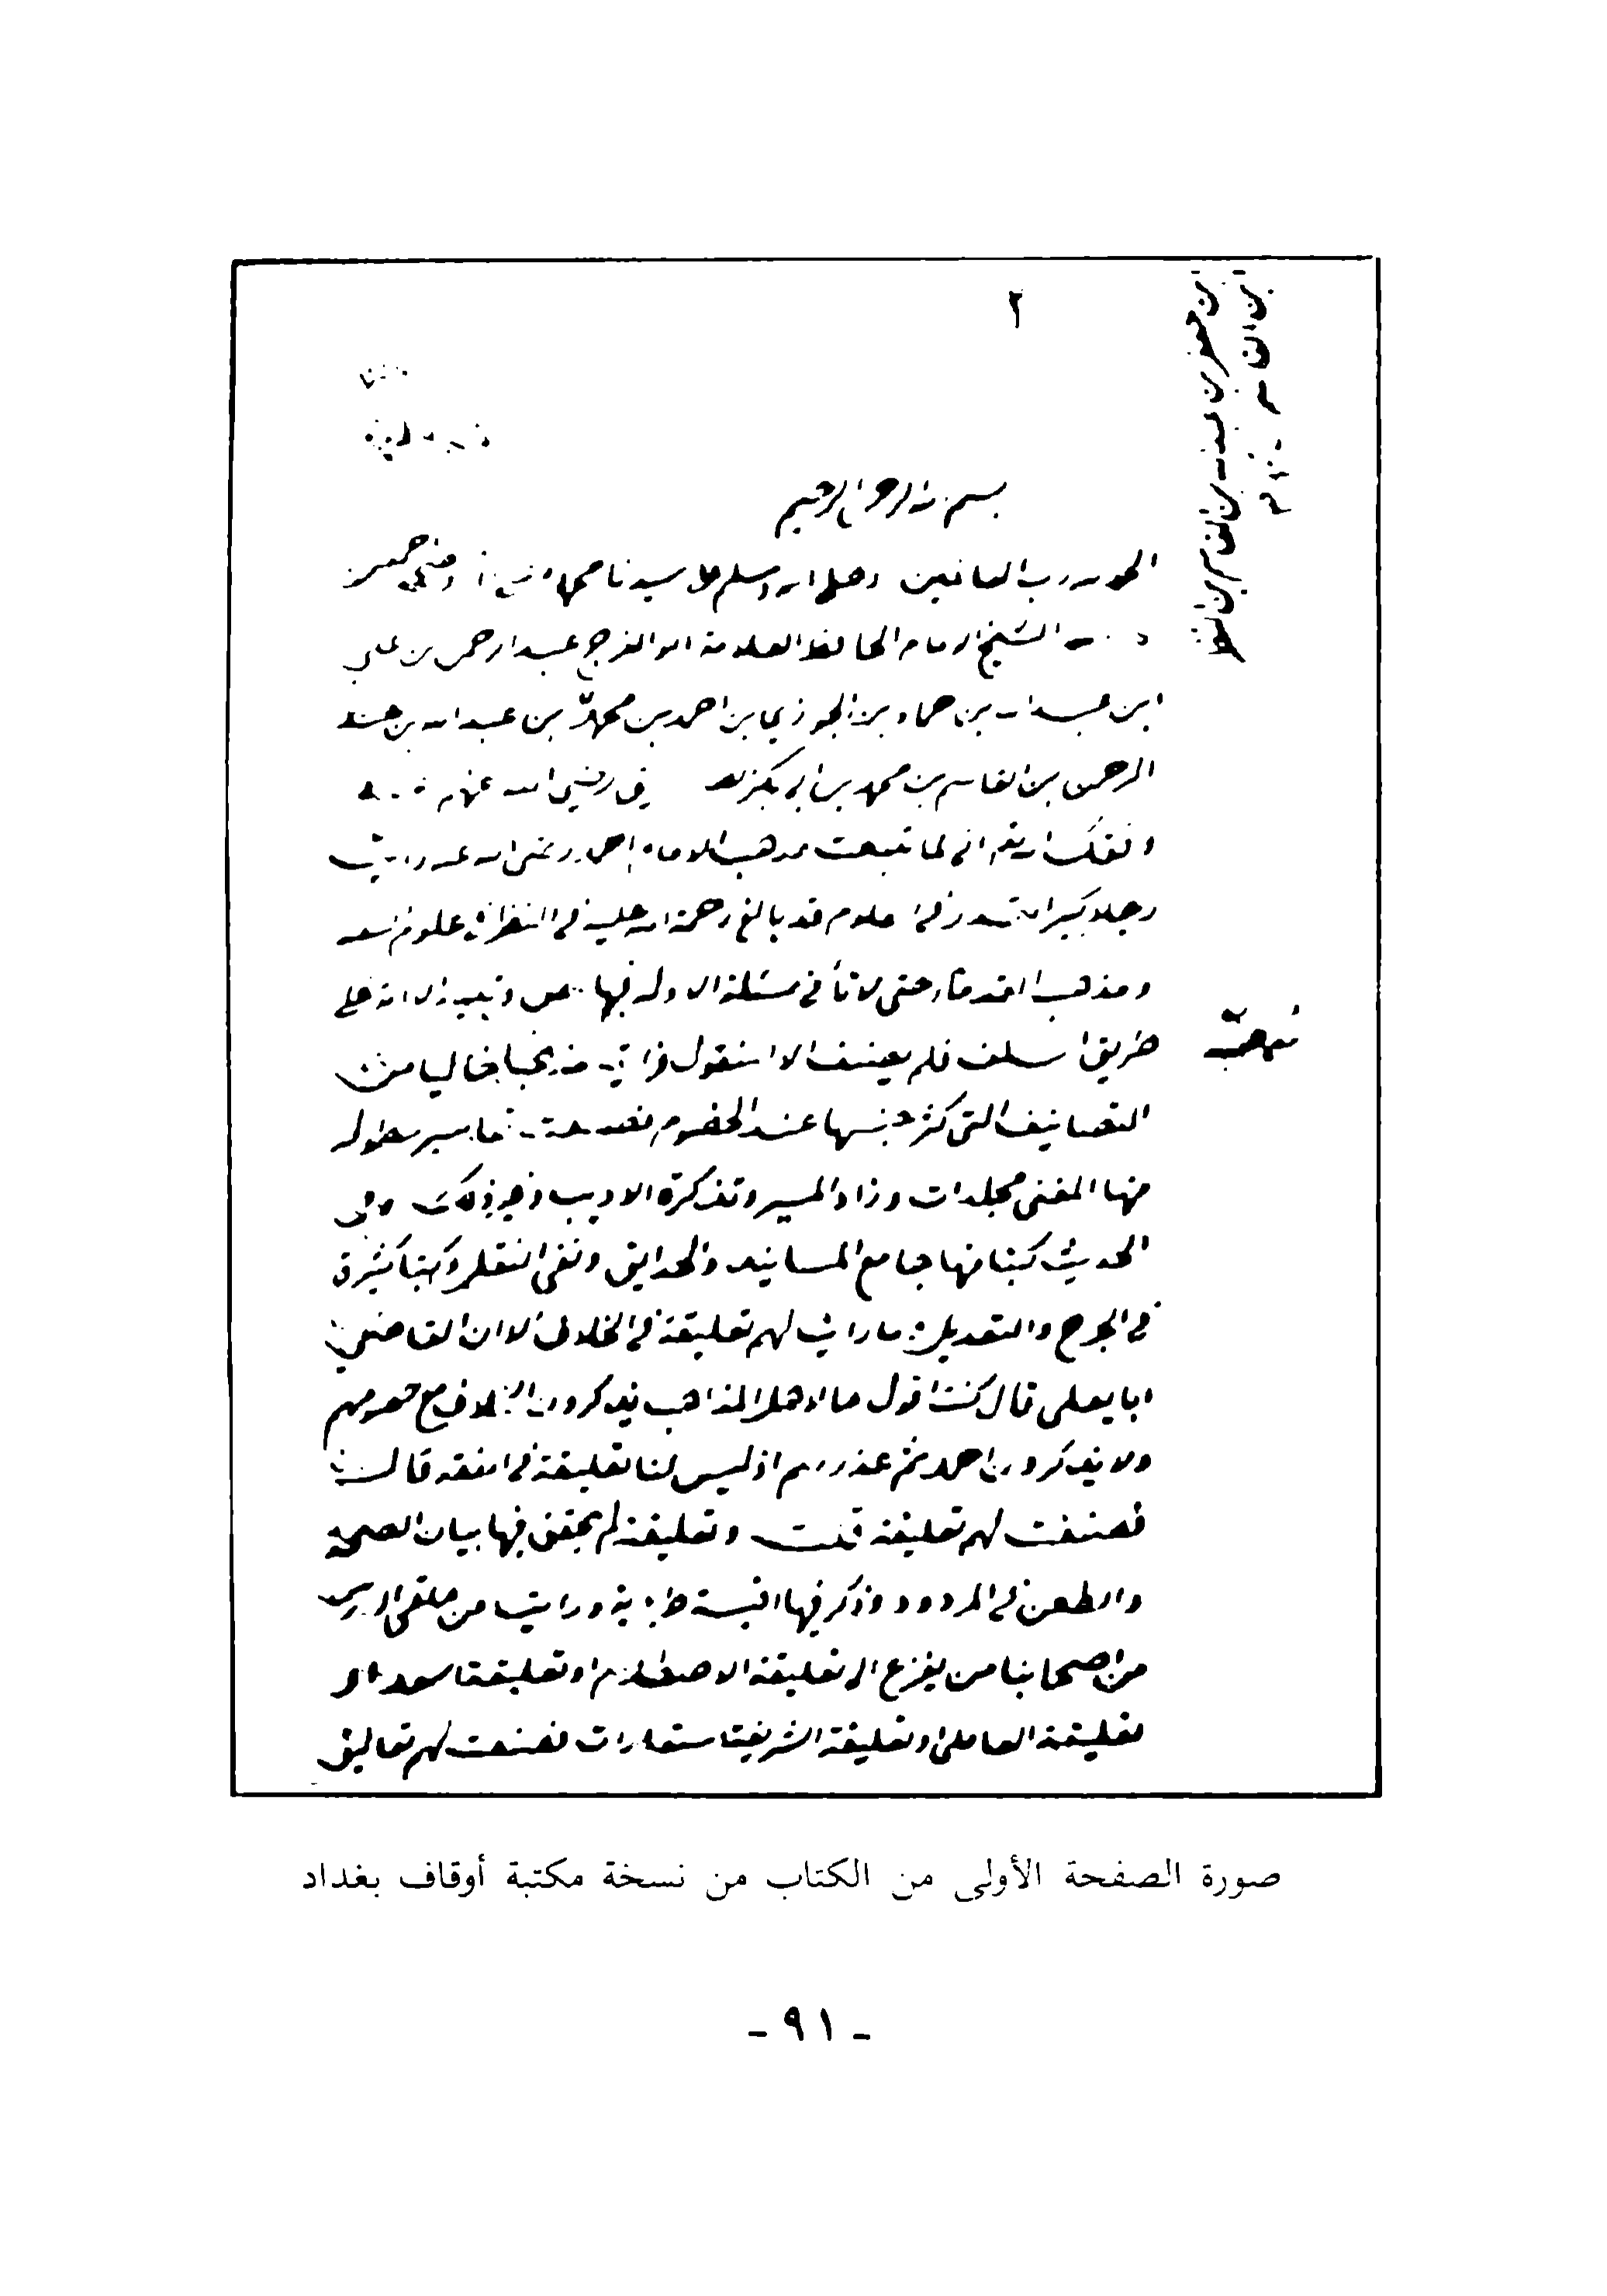 ٢
بن جعفر بن عبد الله بن القاسم بن النضر
بن القاسم
بسم الله الرحمن الرحيم
الحمد لله رب العالمين وصلى الله وسلم على سيدنا محمد
الشيخ الامام الحافظ العلامة ابو الفرج عبد الرحمن بن علي
ابن عبيد الله بن حماد بن الجوزي بن احمد بن محمد بن عبد الله بن عبد
الرحمن بن القاسم بن محمد بن ابي بكر رضي الله عنهم
وفقك الله اني لما تتبعت مذهب الامام احمد رضي الله عنه رايت
رجلا كبير القدر في العلوم قد بالغ رحمة الله عليه في النظر في علوم
ومذهب القدماء حتى لا تأتي مسئلة الا وله فيها نص وتنبيه الا انه على
طريق السلف فلم يصنف الا المنقول فرايت مذهبه خاليا من
مذهبه
التصانيف التي كثر جنسها عند الخصوم فصنفت تفاسير مطولة
منها المغنى مجلدات وزاد المسير وتذكرة الاديب وغير ذلك وفي
الحديث كتبا منها جامع المسانيد والحدايق ونفي النقل وكتبا كثيرة
في الجرح والتعديل وما رايت لهم تعليقة في الخلاف الا ان القاضي
ابا يعلى قال كنت اقول ما لاهل المذاهب يذكرون الخلاف مع خصومهم
ولا يذكرون احمد ثم عذرتهم اذ ليس لنا تعليقة في الفقه قال
فصنفت لهم تعليقة قلت وتعليقته لم يحقق فيها بيان الصحة
والطعن في المردود وذكر فيها اقيسة طردية ورايت من يلقي الدرس
من اصحابنا من يفزع الى تعليقة الاصطلام او تعليقة اسعد او
تعليقة العاملي او تعليقة الشريف استعارات فصنفت لهم تعاليق
صورة الصفحة الأولى من الكتاب من نسخة مكتبة أوقاف بغداد
- ٩١ -